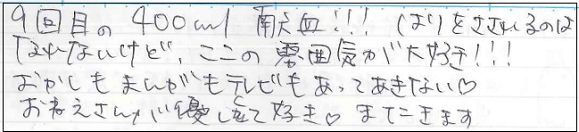 9回目の400ml献血!!! はりをさされるのは
なれないけど、ここの雰囲気が大好き!!!
おかしもまんがもテレビもあってあきない♡
おねえさんが優しくて好き♡ またきます